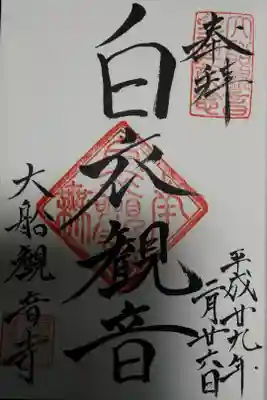 奉拝
平成廿九年
二月廿六日
白衣観音
大船観音寺